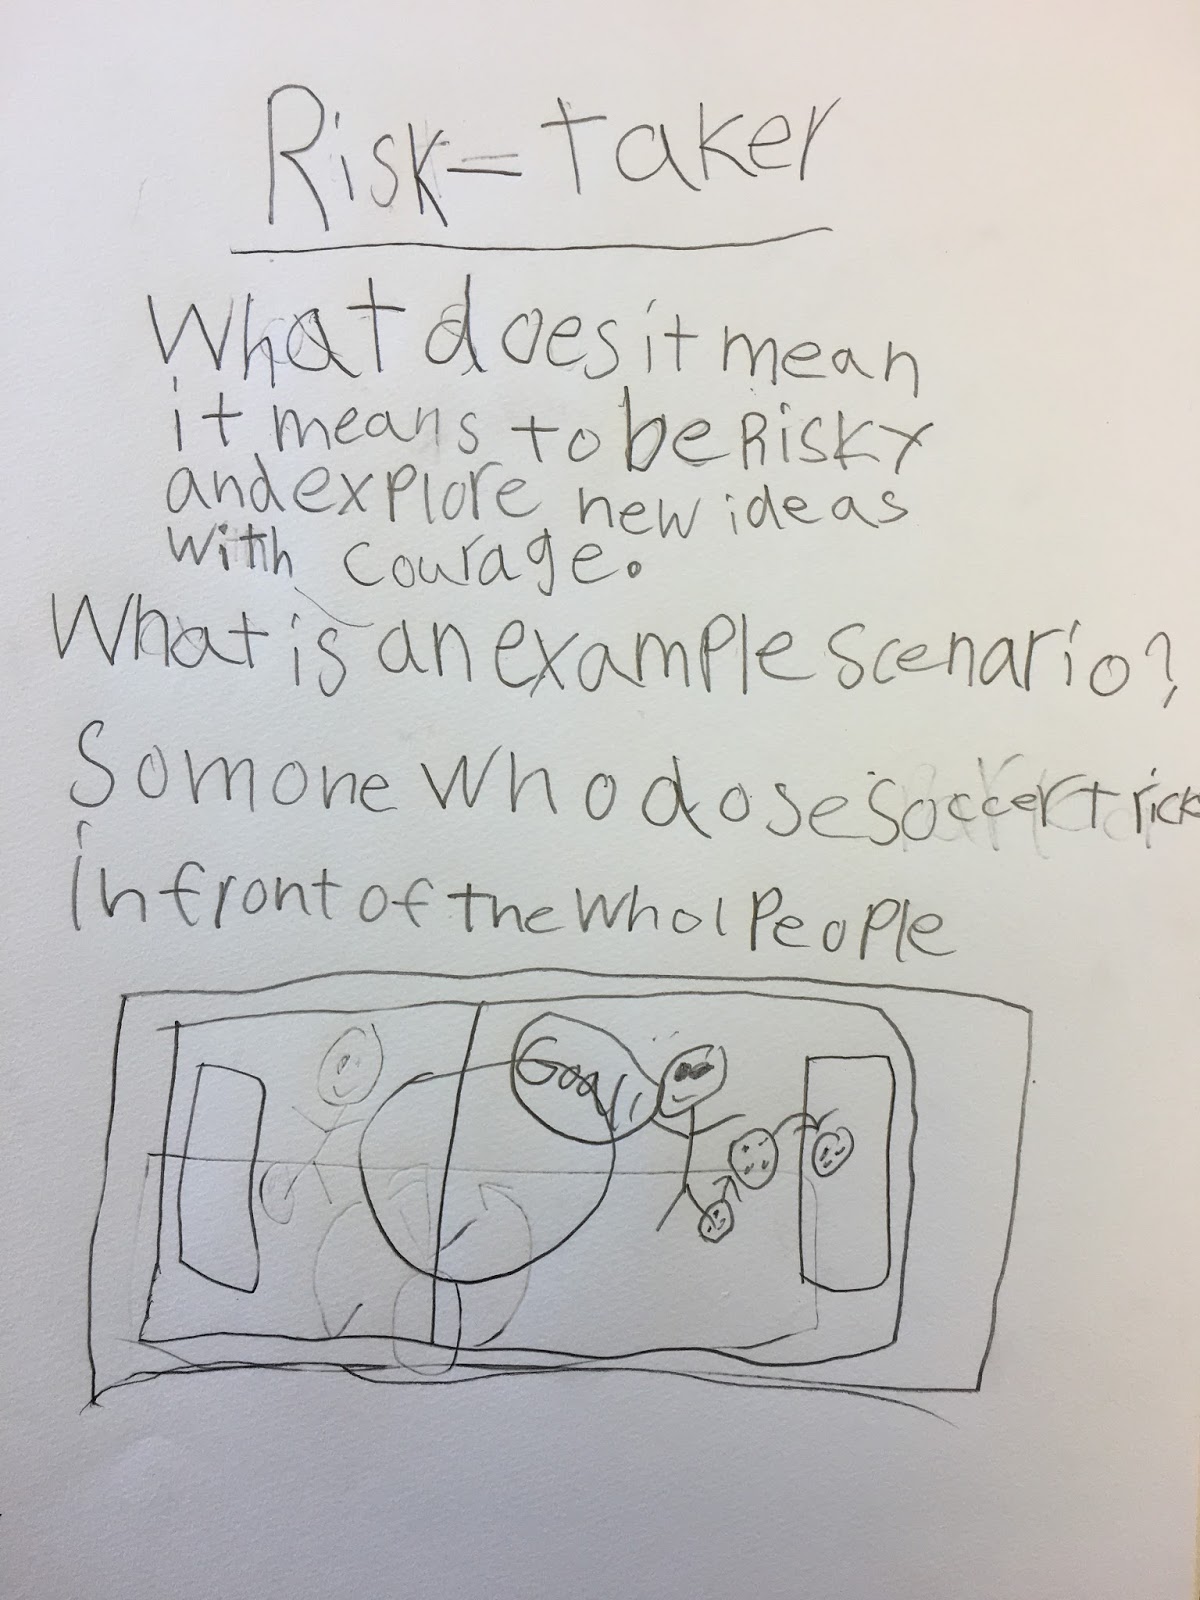 Risk-taker
What does it mean
it means to be Risky
and explore new ideas
with courage.
What is an example scenario?
Somone who dose soccer trick
in front of the whol People
Goal!